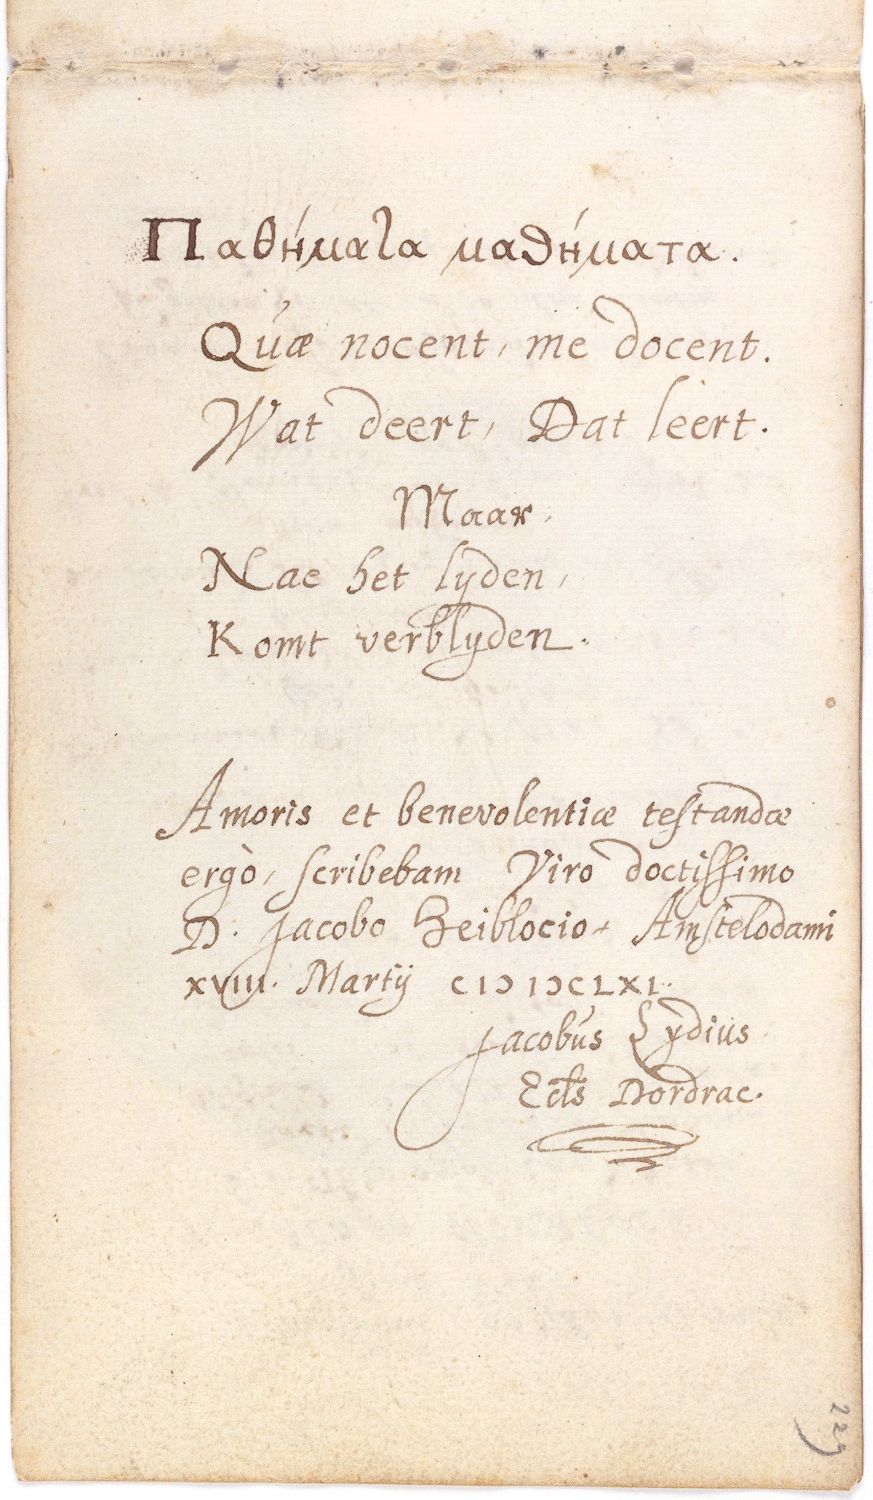 Παθήματα μαθήματα.
Quæ nocent, me docent.
Wat deert, Dat leert.
Maar,
Nae het lyden,
Komt verblyden.
Amoris et benevolentiæ testandæ
ergò, scribebam Viro doctissimo
D. Jacobo Heiblocio. Amstelodami
XVIII. Martij CIↃ IↃCLXI.
Jacobus Lydius
Ecls Dordrac.